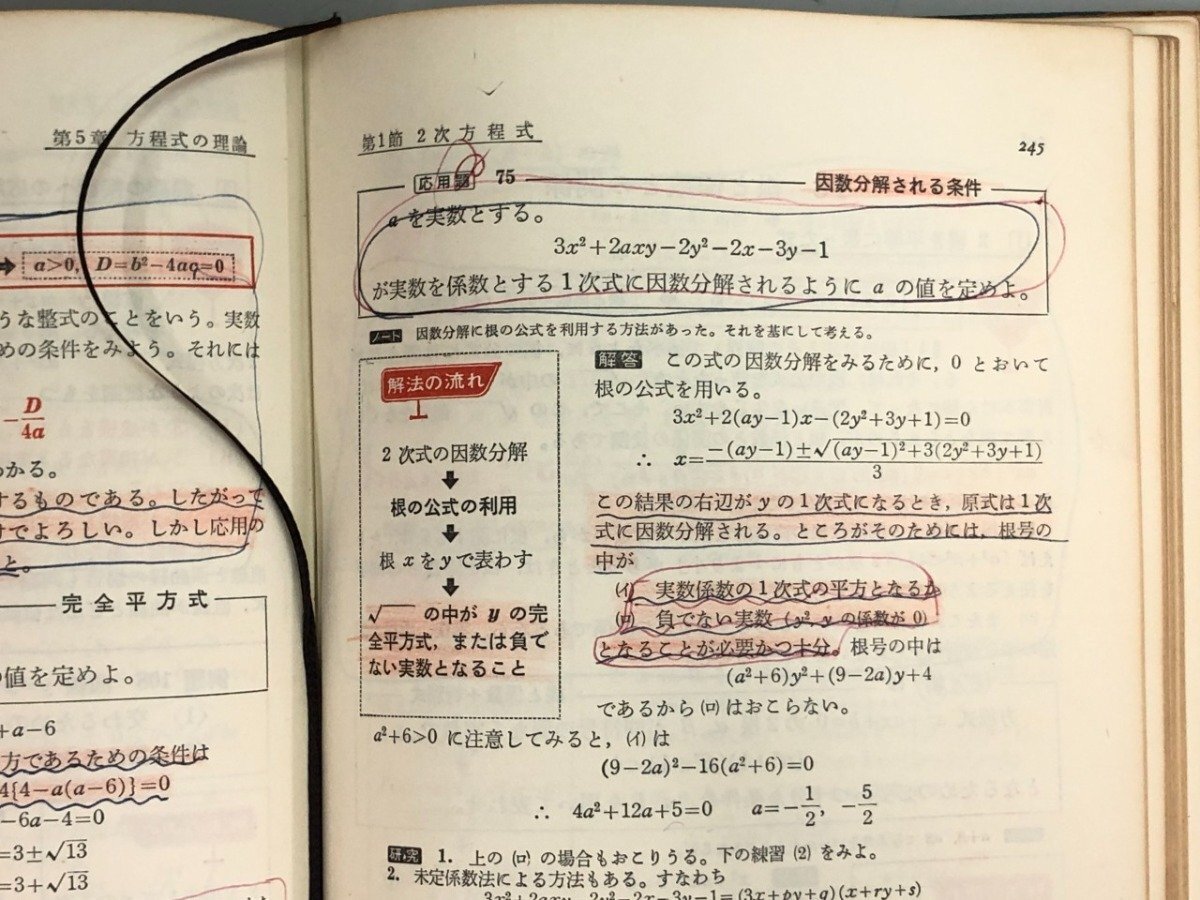 第5章 方程式の理論
a>0, D=b²−4ac=0
うな整式のことをいう。実数
めの条件をみよう。それには
−D/4a
わかる。
するものである。したがって
けでよろしい。しかし応用の
と。
完全平方式
の値を定めよ。
+a−6
方であるための条件は
4{4−a(a−6)}=0
−6a−4=0
=3±√13
=3+√13
第1節 2次方程式
245
応用題 75 因数分解される条件
a を実数とする。
3x²+2axy−2y²−2x−3y−1
が実数を係数とする1次式に因数分解されるように a の値を定めよ。
ノート 因数分解に根の公式を利用する方法があった。それを基にして考える。
解法の流れ
2次式の因数分解
根の公式の利用
根 x を y で表わす
√ の中が y の完
全平方式, または負で
ない実数となること
解答 この式の因数分解をみるために, 0 とおいて
根の公式を用いる。
3x²+2(ay−1)x−(2y²+3y+1)=0
∴ x=−(ay−1)±√(ay−1)²+3(2y²+3y+1)/3
この結果の右辺が y の1次式になるとき, 原式は1次
式に因数分解される。ところがそのためには, 根号の
中が
(イ) 実数係数の1次式の平方となるか
(ロ) 負でない実数 (y², y の係数が 0)
となることが必要かつ十分。根号の中は
(a²+6)y²+(9−2a)y+4
であるから (ロ) はおこらない。
a²+6>0 に注意してみると, (イ) は
(9−2a)²−16(a²+6)=0
∴ 4a²+12a+5=0 a=−1/2, −5/2
研究 1. 上の (ロ) の場合もおこりうる。下の練習 (2) をみよ。
2. 未定係数法による方法もある。すなわち
3x²+2axy−2y²−2x−3y−1=(3x+py+q)(x+ry+s)